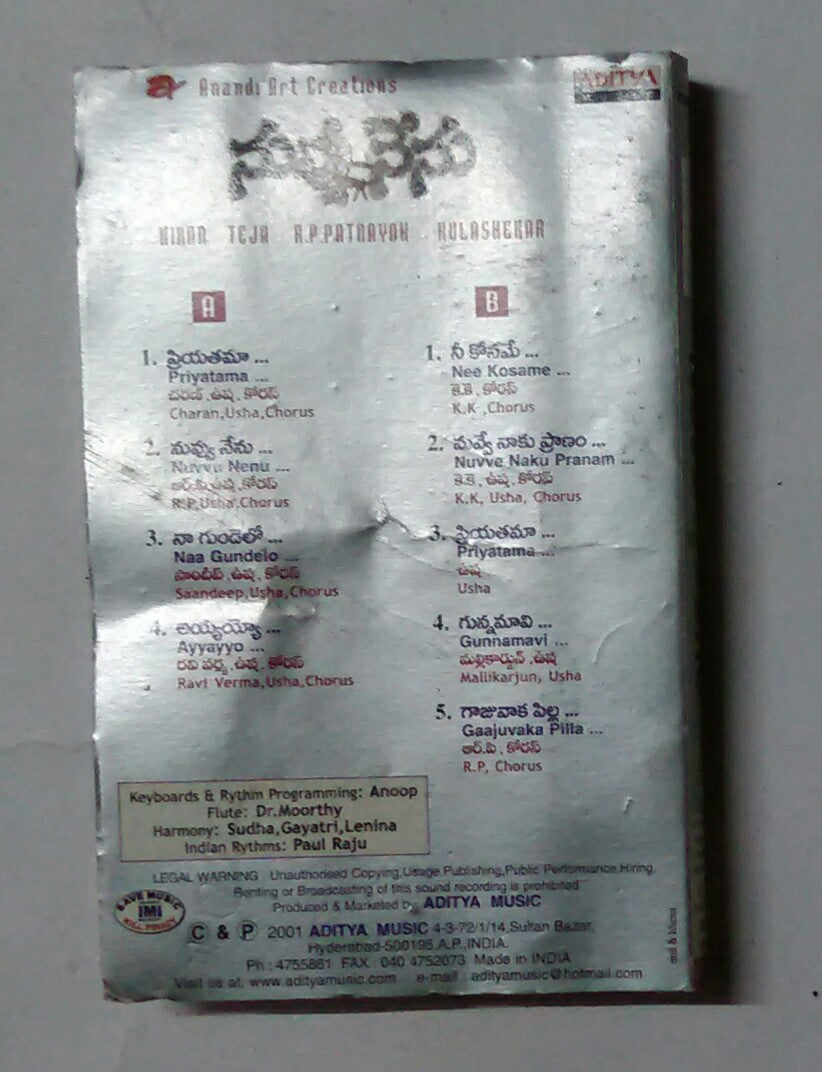 Anandi Art Creations
ADITYA
MUSIC
నువ్వు నేను
KIRAN TEJA R.P.PATNAYAK KULASHEKAR
A
1. ప్రియతమా ...
Priyatama ...
చరణ్, ఉష, కోరస్
Charan,Usha,Chorus
2. నువ్వు నేను ...
Nuvvu Nenu ...
ఆర్.పి,ఉష, కోరస్
R.P,Usha,Chorus
3. నా గుండెలో ...
Naa Gundelo ...
సాందీప్, ఉష, కోరస్
Saandeep,Usha,Chorus
4. అయ్యయ్యో ...
Ayyayyo ...
రవి వర్మ, ఉష, కోరస్
Ravi Verma,Usha,Chorus
B
1. నీ కోసమే ...
Nee Kosame ...
కె.కె, కోరస్
K.K ,Chorus
2. నువ్వే నాకు ప్రాణం ...
Nuvve Naku Pranam ...
కె.కె, ఉష, కోరస్
K.K, Usha, Chorus
3. ప్రియతమా ...
Priyatama ...
ఉష
Usha
4. గున్నమావి ...
Gunnamavi ...
మల్లికార్జున్, ఉష
Mallikarjun, Usha
5. గాజువాక పిల్ల ...
Gaajuvaka Pilla ...
ఆర్.పి, కోరస్
R.P, Chorus
Keyboards & Rythm Programming: Anoop
Flute: Dr.Moorthy
Harmony: Sudha,Gayatri,Lenina
Indian Rythms: Paul Raju
LEGAL WARNING Unauthorised Copying,Usage Publishing,Public Performance,Hiring,
Renting or Broadcasting of this sound recording is prohibited
Produced & Marketed by ADITYA MUSIC
SAVE MUSIC
IMI
KILL PIRACY
© & ℗ 2001 ADITYA MUSIC 4-3-72/1/14,Sultan Bazar,
Hyderabad-500195.A.P.,INDIA.
Ph : 4755861 FAX : 040 4752073 Made in INDIA
Visit us at: www.adityamusic.com e-mail : adityamusic@hotmail.com